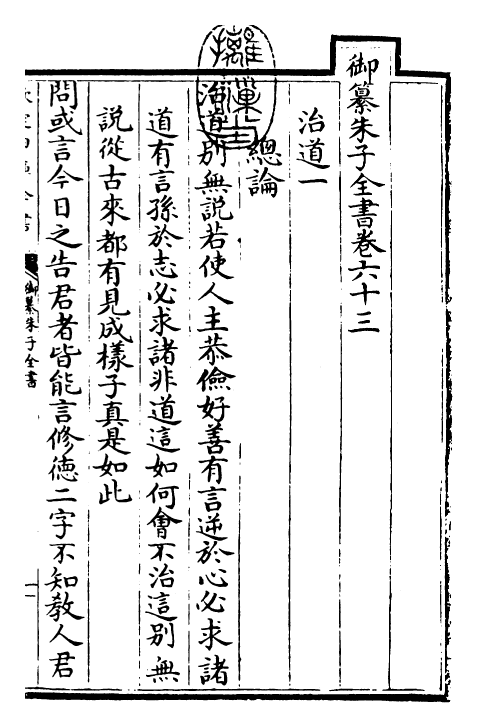 御纂朱子全書卷六十三
治道一
總論
治道別無說若使人主恭儉好善有言逆於心必求諸
道有言孫於志必求諸非道這如何會不治這別無
說從古來都有見成樣子真是如此
問或言今日之告君者皆能言修德二字不知教人君
御纂朱子全書
一